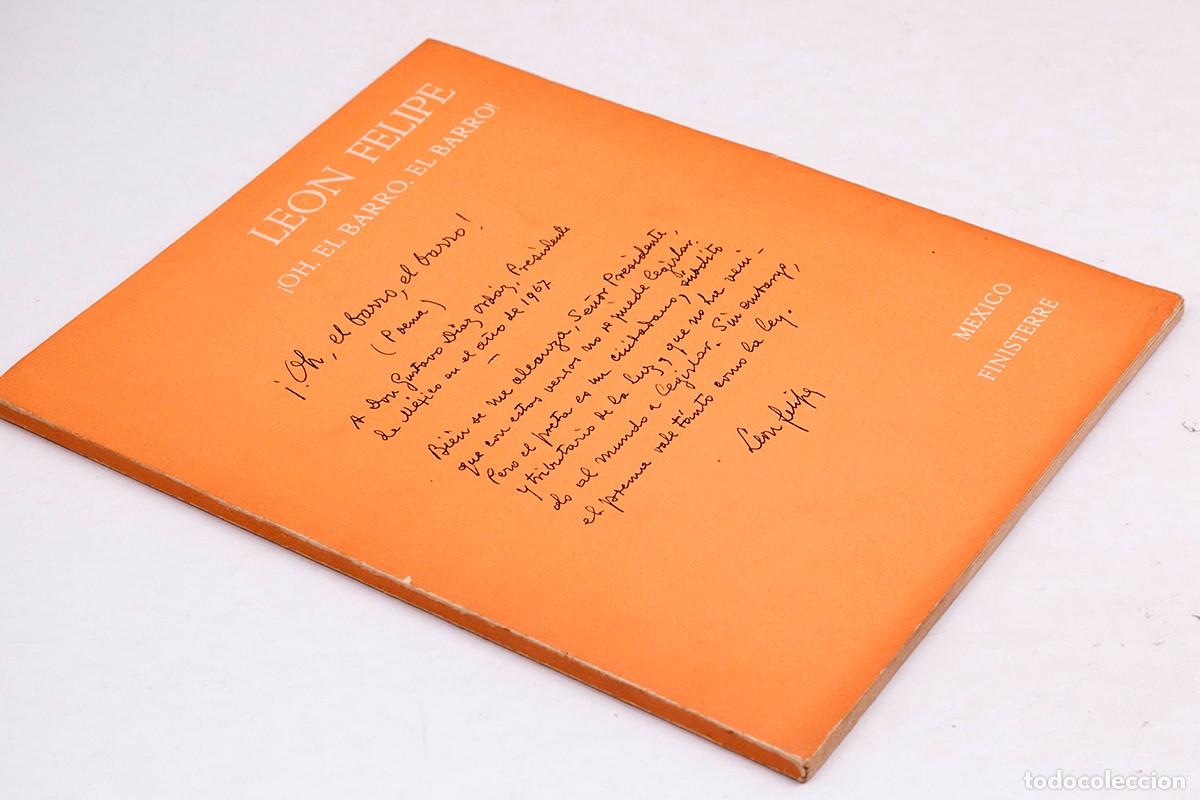 LEON FELIPE
¡OH, EL BARRO, EL BARRO!
¡Oh, el barro, el barro!
(Poema)
A Don Gustavo Díaz Ordaz, Presidente
de México en el año de 1967
—
Bién se me alcanza, Señor Presidente,
que con estos versos no se puede legislar.
Pero el poeta es un ciudadano, súbdito
y tributario de la Luz, y que no ha veni-
do al mundo a legislar. Sin embargo,
el poema vale tánto como la ley.
León Felipe
MEXICO
FINISTERRE
todocoleccion